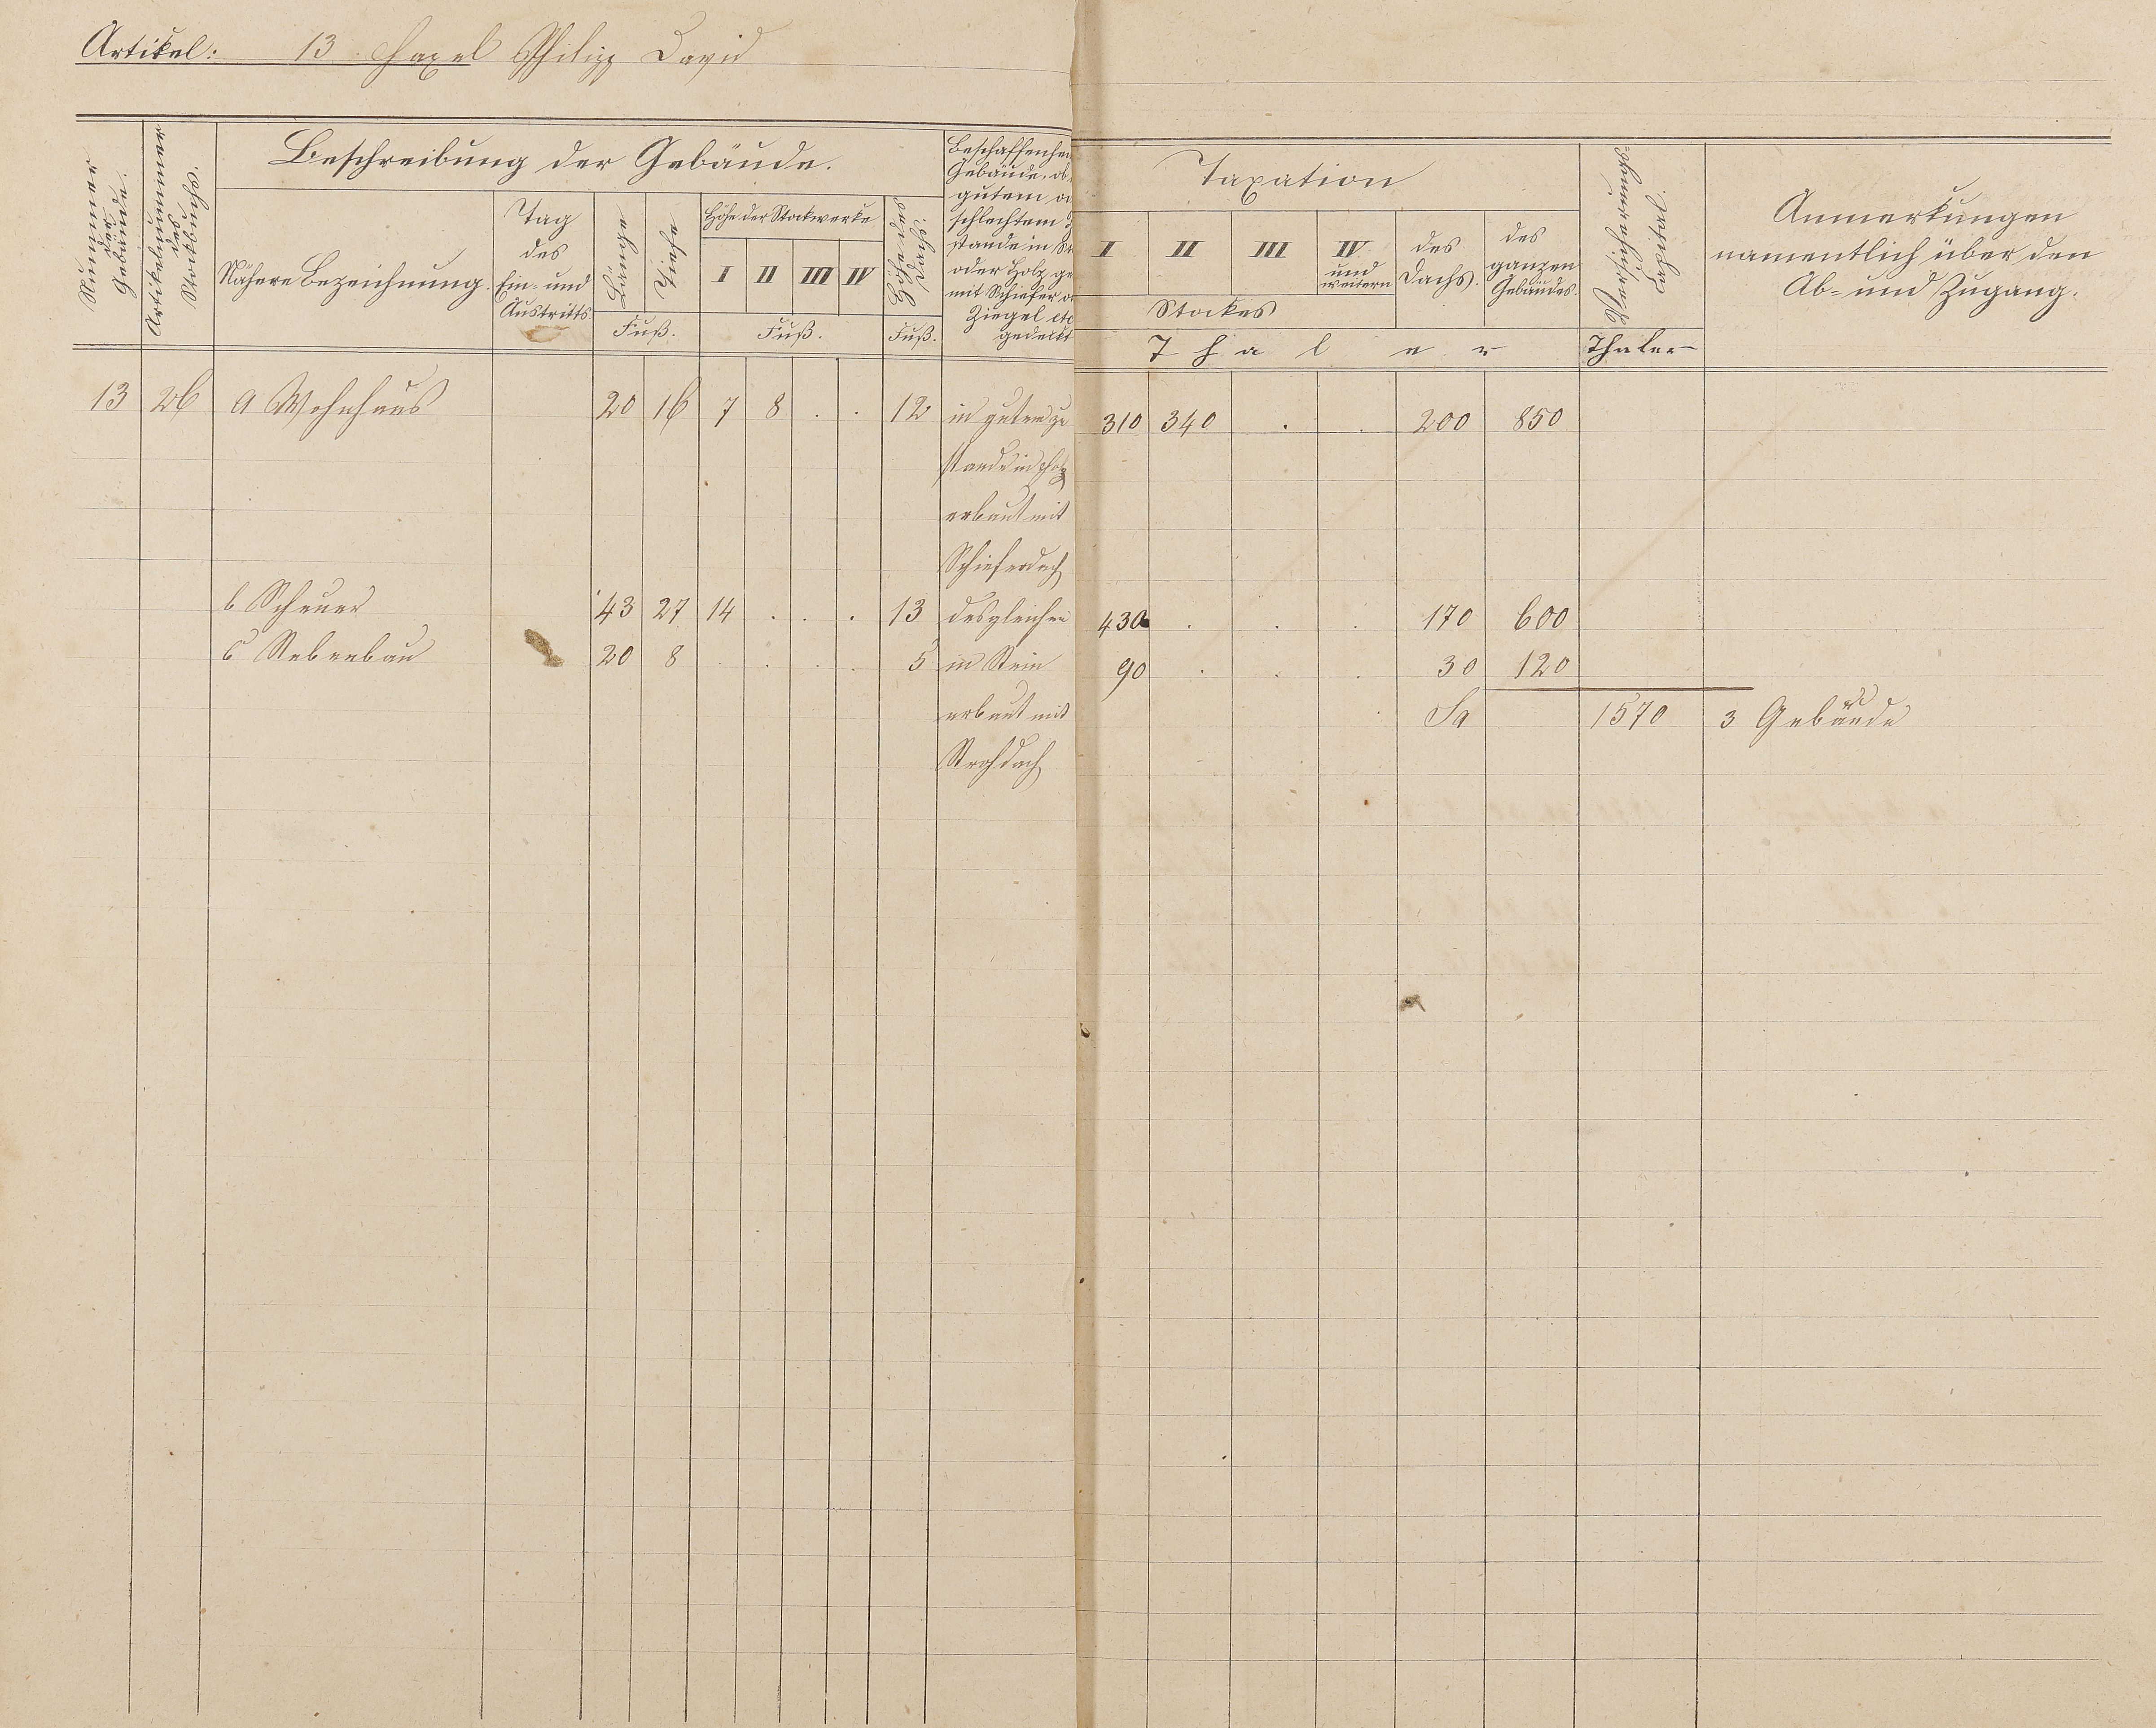 Artikel: 13 Haxel Philipp David
Nummer der Gebäude.
Artikelnummer des Stockbuchs.
Beschreibung der Gebäude.
Nähere Bezeichnung.
Tag des Ein- und Austritts.
Länge
Tiefe
Fuß.
Höhe der Stockwerke
I II III IV
Fuß.
Höhe des Dachs.
Fuß.
Beschaffenhei
Gebäude, ob
gutem o
schlechtem
stande in
oder Holz ge
mit Schiefer o
Ziegel etc
gedeckt
Taxation
I II III IV und weitern
Stockes
des Dachs.
des ganzen Gebäudes.
Thaler
Capital.
Thaler
Anmerkungen
namentlich über den
Ab- und Zugang.
13 26 a Wohnhaus 20 16 7 8 . . 12 in gutem Zu 310 340 . . 200 850
stande in Holz
erbaut mit
Schieferdach
b Scheuer 43 27 14 . . . 13 desgleichen 430 . . . 170 600
c Nebenbau 20 8 . . . . 5 in Stein 90 . . . 30 120
erbaut mit Sa 1570 3 Gebäude
Strohdach